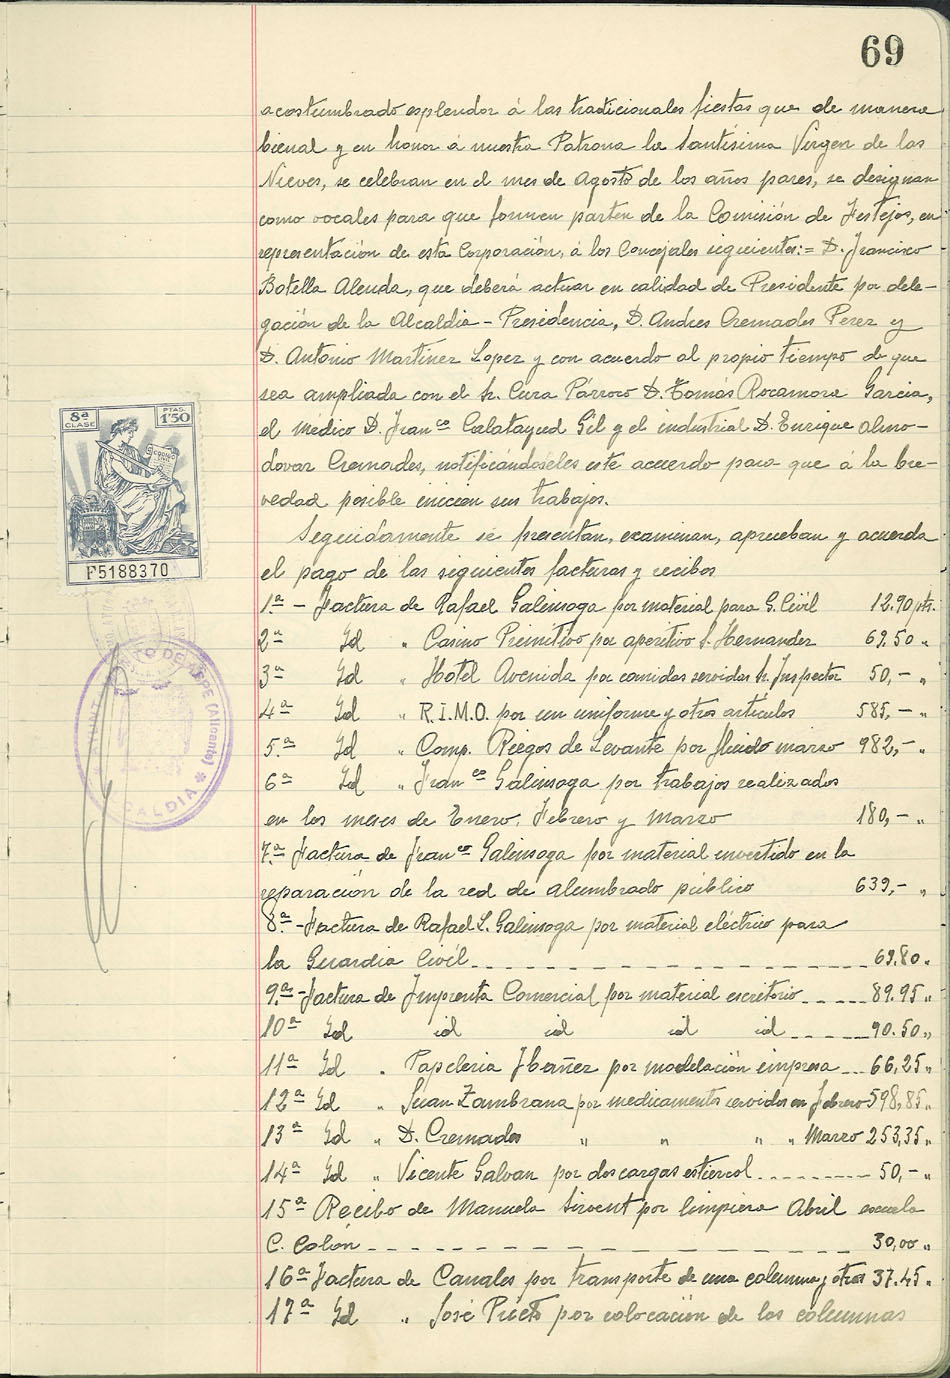 69
acostumbrado esplendor á las tradicionales fiestas que de manera
bienal y en honor á nuestra Patrona la Santísima Virgen de las
Nieves, se celebran en el mes de Agosto de los años pares, se designan
como vocales para que formen parten de la Comisión de Festejos, en
representación de esta Corporación, á los Concejales siguientes:= D. Francisco
Botella Alenda, que deberá actuar en calidad de Presidente por dele-
gación de la Alcaldia-Presidencia, D. Andres Cremades Perez y
D. Antonio Martinez Lopez y con acuerdo al propio tiempo de que
sea ampliada con el Sr. Cura Párroco D. Tomás Rocamora Garcia,
el médico D. Franco Calatayud Gil y el industrial D. Enrique Almo-
dovar Cremades, notificándoseles este acuerdo para que á la bre-
vedad posible inicien sus trabajos.
Seguidamente se presentan, examinan, aprueban y acuerda
el pago de las siguientes facturas y recibos
1ª - Factura de Rafael Galinsoga por material para G. Civil 12.90 pts.
2ª Id " Casino Primitivo por aperitivo S. Hernandez 69.50 "
3ª Id " Hotel Avenida por comidas servidas Sr. Inspector 50,- "
4ª Id " R.I.M.O. por un uniforme y otros artículos 585,- "
5ª Id " Comp. Riegos de Levante por fluido marzo 982,- "
6ª Id " Franco Galinsoga por trabajos realizados
en los meses de Enero, Febrero y Marzo 180,- "
7ª Factura de Franco Galinsoga por material invertido en la
reparación de la red de alumbrado público 639,- "
8ª - Factura de Rafael S. Galinsoga por material eléctrico para
la Guardia Civil 69.80 "
9ª - Factura de Imprenta Comercial por material escritorio 89.95 "
10ª Id id id id id 90.50 "
11ª Id " Papeleria Ibañez por modelación impresa 66,25 "
12ª Id " Juan Zambrana por medicamentos servidos en Febrero 598,85 "
13ª Id " D. Cremades " " " " Marzo 253,35 "
14ª Id " Vicente Galvan por dos cargas estiercol 50,- "
15ª Recibo de Manuela Sirvent por limpieza Abril escuela
C. Colón 30,00 "
16ª Factura de Canales por transporte de una columna y otros 37.45 "
17ª Id " José Prieto por colocación de las columnas
8ª CLASE
PTAS. 1'50
F5188370
AYUNTAMIENTO DE ASPE (Alicante)
ALCALDIA